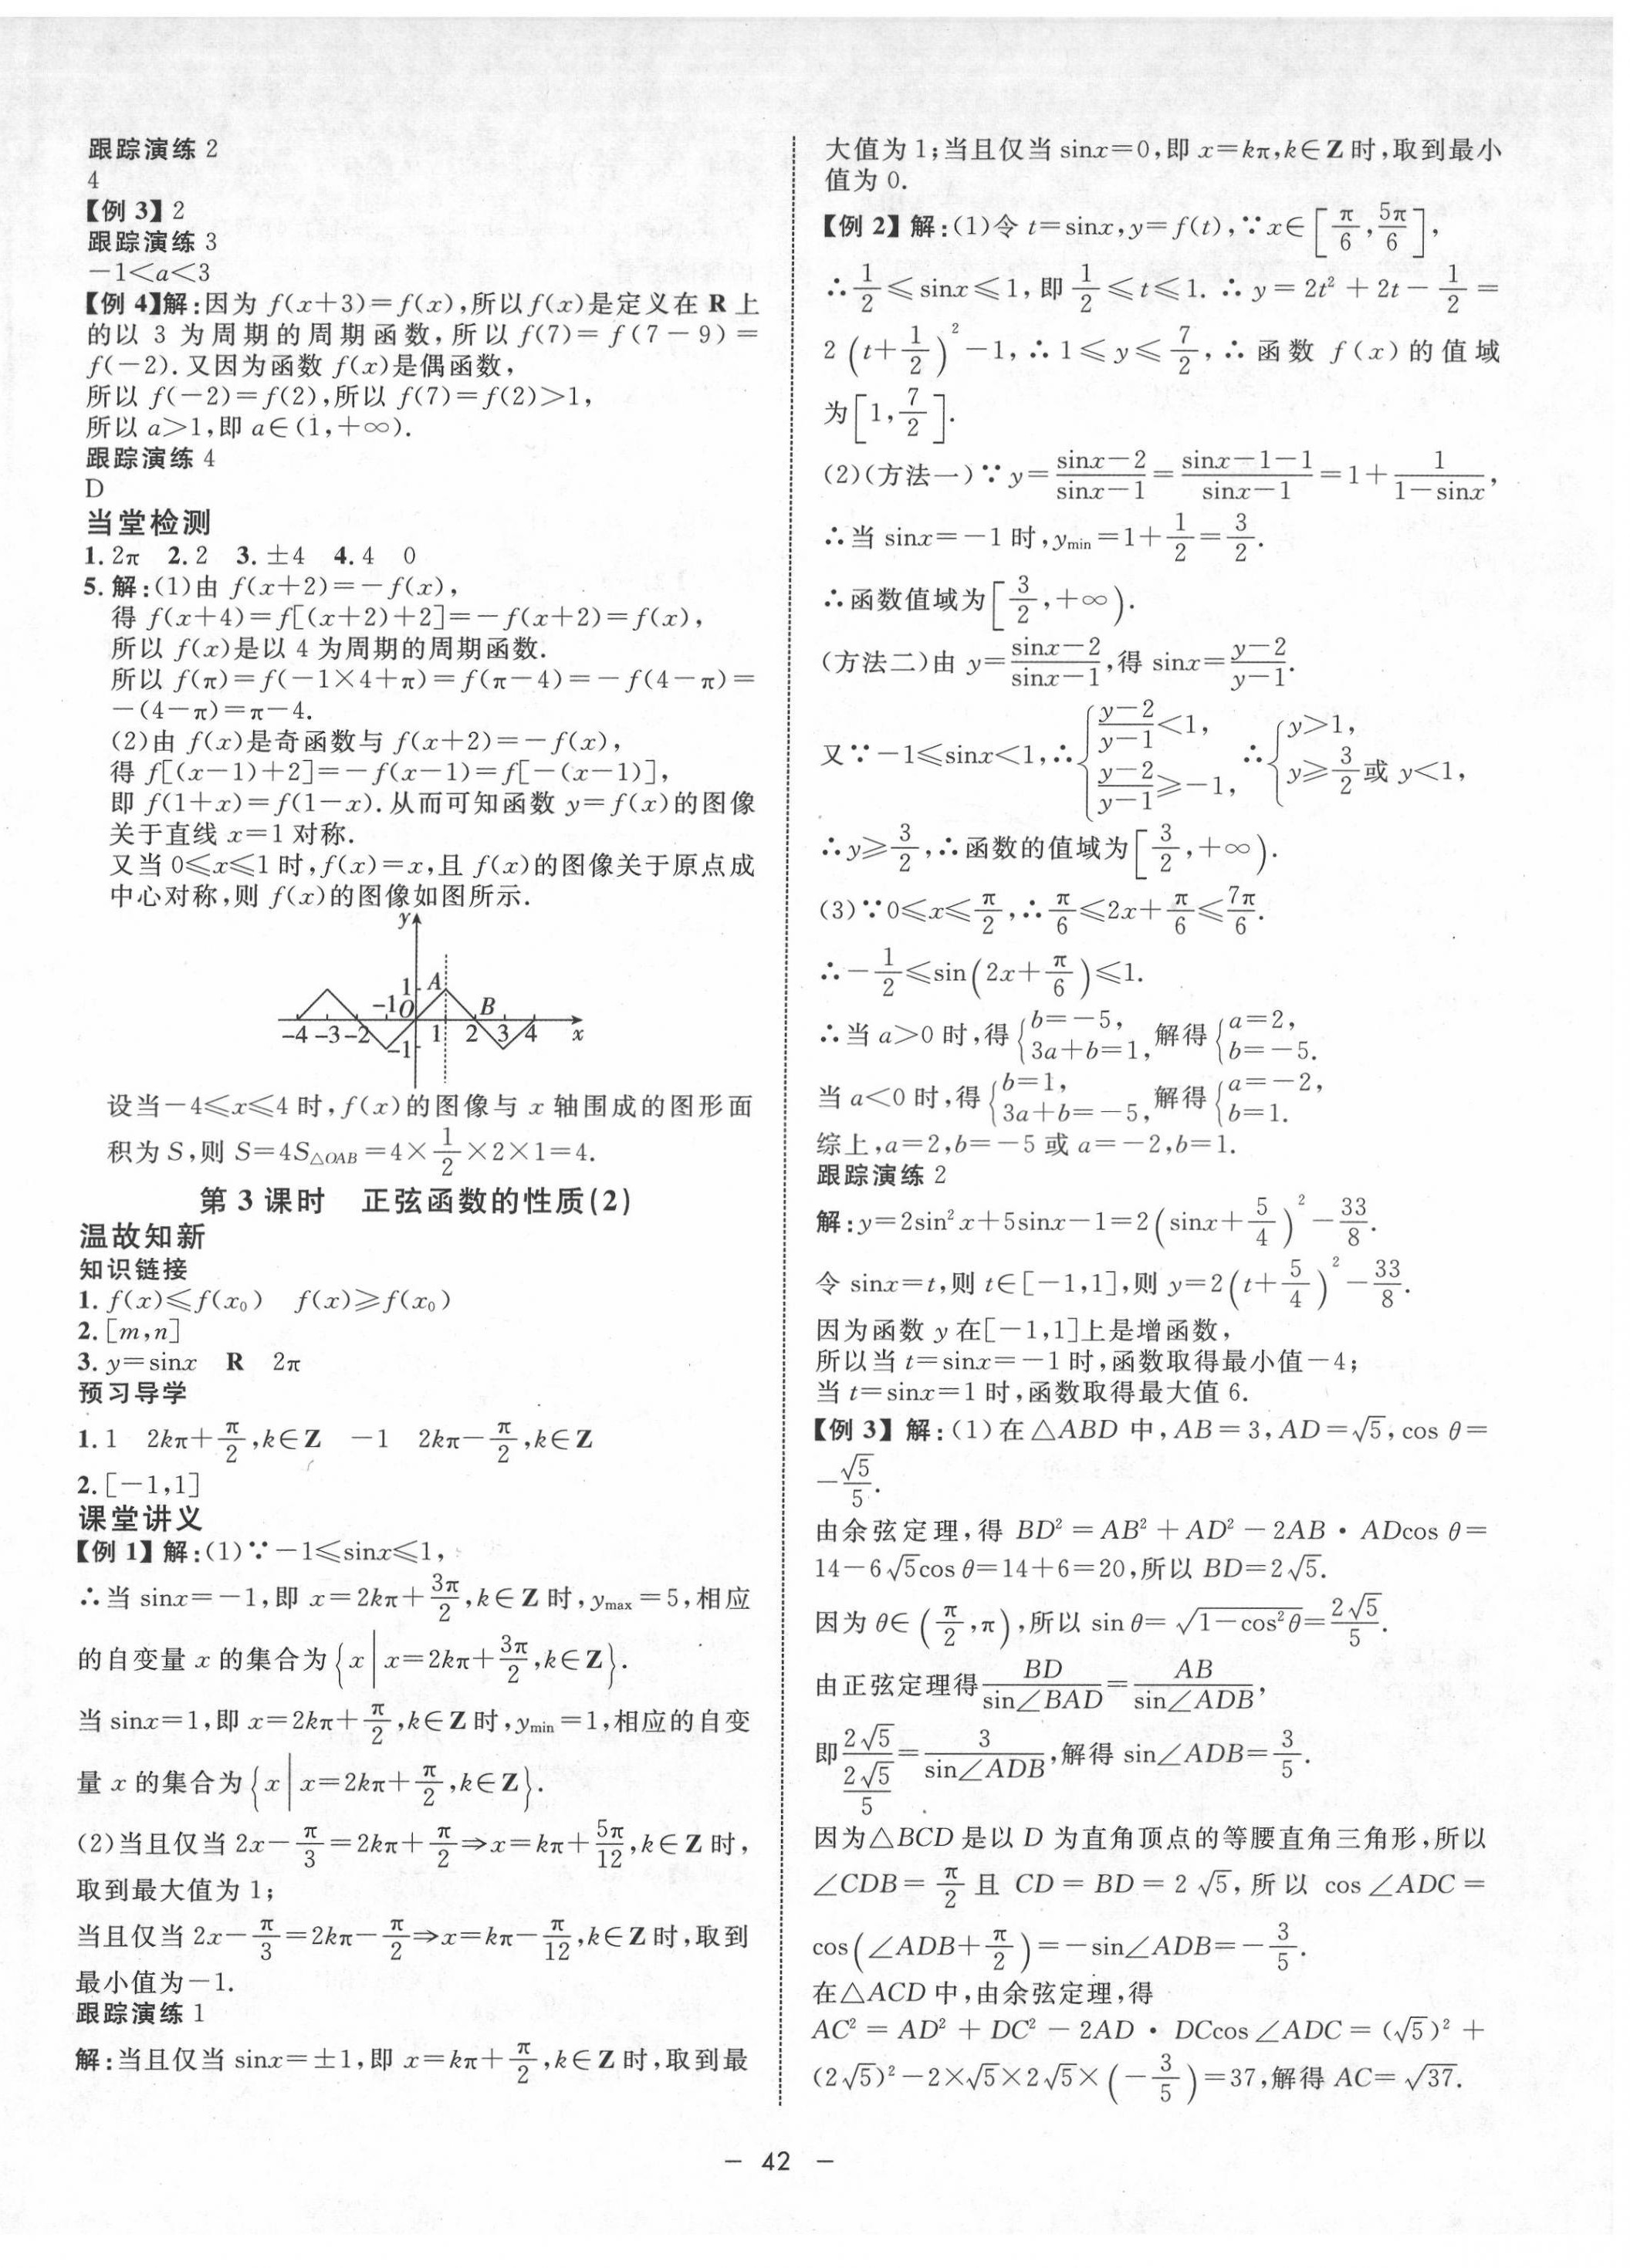 跟踪演练 2
4
【例 3】2
跟踪演练 3
−1<a<3
【例 4】解:因为 f(x+3)=f(x),所以 f(x)是定义在 R 上
的以 3 为周期的周期函数,所以 f(7)=f(7−9)=
f(−2).又因为函数 f(x)是偶函数,
所以 f(−2)=f(2),所以 f(7)=f(2)>1,
所以 a>1,即 a∈(1,+∞).
跟踪演练 4
D
当堂检测
1.2π 2.2 3.±4 4.4 0
5.解:(1)由 f(x+2)=−f(x),
得 f(x+4)=f[(x+2)+2]=−f(x+2)=f(x),
所以 f(x)是以 4 为周期的周期函数.
所以 f(π)=f(−1×4+π)=f(π−4)=−f(4−π)=
−(4−π)=π−4.
(2)由 f(x)是奇函数与 f(x+2)=−f(x),
得 f[(x−1)+2]=−f(x−1)=f[−(x−1)],
即 f(1+x)=f(1−x).从而可知函数 y=f(x)的图像
关于直线 x=1 对称.
又当 0≤x≤1 时,f(x)=x,且 f(x)的图像关于原点成
中心对称,则 f(x)的图像如图所示.
y
1 A
−1 O B
−4 −3 −2 1 2 3 4 x
−1
设当−4≤x≤4 时,f(x)的图像与 x 轴围成的图形面
积为 S,则 S=4S△OAB=4×1/2×2×1=4.
第 3 课时 正弦函数的性质(2)
温故知新
知识链接
1.f(x)≤f(x₀) f(x)≥f(x₀)
2.[m,n]
3.y=sinx R 2π
预习导学
1.1 2kπ+π/2,k∈Z −1 2kπ−π/2,k∈Z
2.[−1,1]
课堂讲义
【例 1】解:(1)∵−1≤sinx≤1,
∴当 sinx=−1,即 x=2kπ+3π/2,k∈Z 时,ymax=5,相应
的自变量 x 的集合为{x|x=2kπ+3π/2,k∈Z}.
当 sinx=1,即 x=2kπ+π/2,k∈Z 时,ymin=1,相应的自变
量 x 的集合为{x|x=2kπ+π/2,k∈Z}.
(2)当且仅当 2x−π/3=2kπ+π/2⇒x=kπ+5π/12,k∈Z 时,
取到最大值为 1;
当且仅当 2x−π/3=2kπ−π/2⇒x=kπ−π/12,k∈Z 时,取到
最小值为−1.
跟踪演练 1
解:当且仅当 sinx=±1,即 x=kπ+π/2,k∈Z 时,取到最
大值为 1;当且仅当 sinx=0,即 x=kπ,k∈Z 时,取到最小
值为 0.
【例 2】解:(1)令 t=sinx,y=f(t),∵x∈[π/6,5π/6],
∴1/2≤sinx≤1,即 1/2≤t≤1.∴y=2t²+2t−1/2=
2(t+1/2)²−1,∴1≤y≤7/2,∴函数 f(x)的值域
为[1,7/2].
(2)(方法一)∵y=(sinx−2)/(sinx−1)=(sinx−1−1)/(sinx−1)=1+1/(1−sinx),
∴当 sinx=−1 时,ymin=1+1/2=3/2.
∴函数值域为[3/2,+∞).
(方法二)由 y=(sinx−2)/(sinx−1),得 sinx=(y−2)/(y−1).
又∵−1≤sinx<1,∴{(y−2)/(y−1)<1, (y−2)/(y−1)≥−1, ∴{y>1, y≥3/2或 y<1,
∴y≥3/2,∴函数的值域为[3/2,+∞).
(3)∵0≤x≤π/2,∴π/6≤2x+π/6≤7π/6.
∴−1/2≤sin(2x+π/6)≤1.
∴当 a>0 时,得{b=−5, 3a+b=1, 解得{a=2, b=−5.
当 a<0 时,得{b=1, 3a+b=−5, 解得{a=−2, b=1.
综上,a=2,b=−5 或 a=−2,b=1.
跟踪演练 2
解:y=2sin²x+5sinx−1=2(sinx+5/4)²−33/8.
令 sinx=t,则 t∈[−1,1],则 y=2(t+5/4)²−33/8.
因为函数 y 在[−1,1]上是增函数,
所以当 t=sinx=−1 时,函数取得最小值−4;
当 t=sinx=1 时,函数取得最大值 6.
【例 3】解:(1)在△ABD 中,AB=3,AD=√5,cos θ=
−√5/5.
由余弦定理,得 BD²=AB²+AD²−2AB·ADcos θ=
14−6√5cos θ=14+6=20,所以 BD=2√5.
因为 θ∈(π/2,π),所以 sin θ=√(1−cos²θ)=2√5/5.
由正弦定理得BD/sin∠BAD=AB/sin∠ADB,
即2√5/(2√5/5)=3/sin∠ADB,解得 sin∠ADB=3/5.
因为△BCD 是以 D 为直角顶点的等腰直角三角形,所以
∠CDB=π/2且 CD=BD=2√5,所以 cos∠ADC=
cos(∠ADB+π/2)=−sin∠ADB=−3/5.
在△ACD 中,由余弦定理,得
AC²=AD²+DC²−2AD·DCcos∠ADC=(√5)²+
(2√5)²−2×√5×2√5×(−3/5)=37,解得 AC=√37.
− 42 −